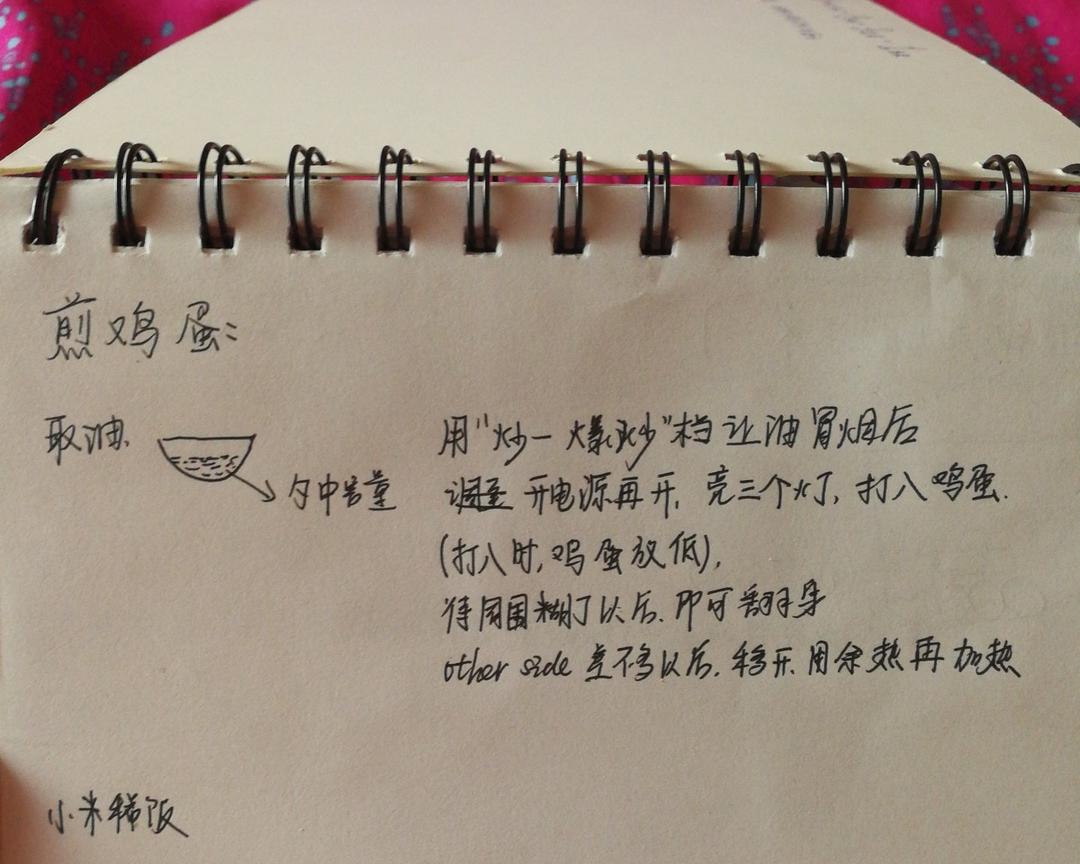 煎鸡蛋:
取油.
夕中容量
用"炒一爆炒"档让油冒烟后
开电源再开,亮三个灯,打入鸡蛋.
(打入时,鸡蛋放低),
待周围糊了以后.即可翻身
other side 差不多以后,移开.用余热再加热
小米稀饭